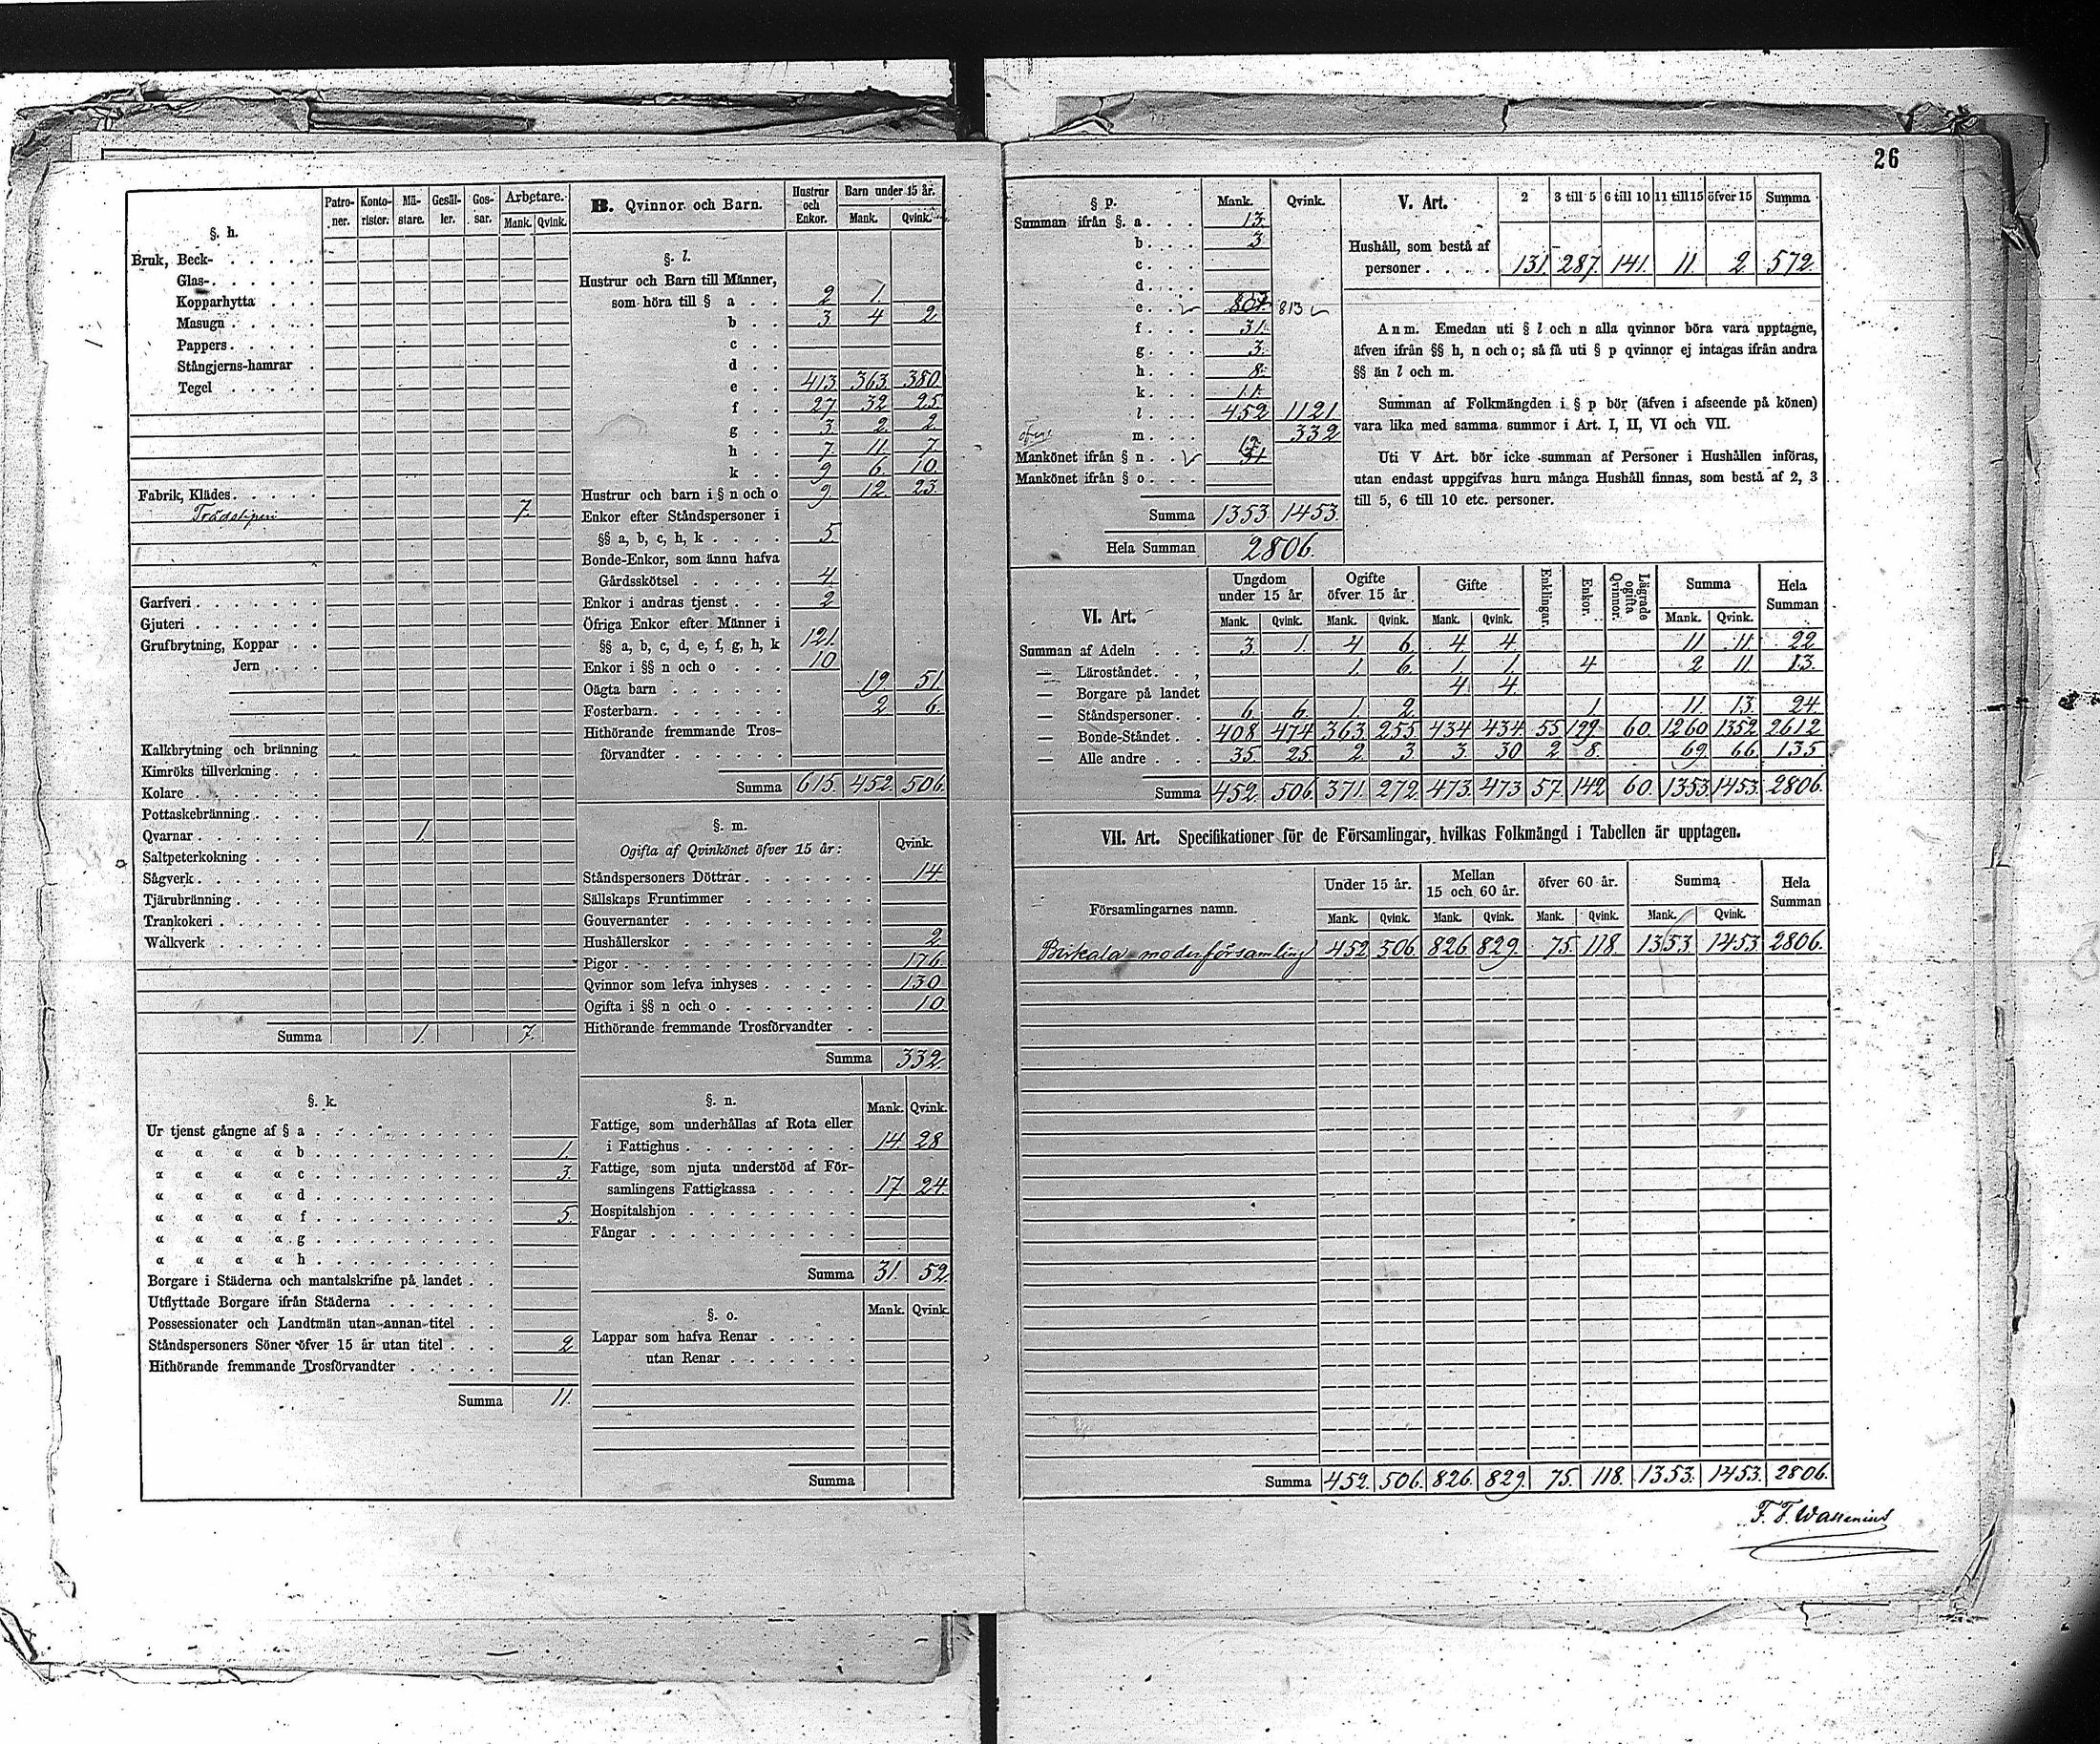 26
§. h.
Patroner. Kontorister. Mästare. Gesäller. Gossar. Arbetare.
Mank. Qvink.
Bruk, Beck-
Glas-
Kopparhytta
Masugn
Pappers
Stångjerns-hamrar
Tegel
Fabrik, Klädes
Trädsliperi 7.
Garfveri
Gjuteri
Grufbrytning, Koppar
Jern
Kalkbrytning och bränning
Kimröks tillverkning
Kolare
Pottaskebränning
Qvarnar 1.
Saltpeterkokning
Sågverk
Tjärubränning
Trankokeri
Walkverk
Summa 1. 7.
§. k.
Ur tjenst gångne af § a
« « « « b 1.
« « « « c 3.
« « « « d
« « « « f 5.
« « « « g
« « « « h
Borgare i Städerna och mantalskrifne på landet
Utflyttade Borgare ifrån Städerna
Possessionater och Landtmän utan annan titel
Ståndspersoners Söner öfver 15 år utan titel 2
Hithörande fremmande Trosförvandter
Summa 11.
B. Qvinnor och Barn. Hustrur och Enkor. Barn under 15 år.
Mank. Qvink.
§. l.
Hustrur och Barn till Männer,
som höra till § a 2 1.
b 3 4 2
c
d
e 413 363. 380.
f 27 32 25.
g 3 2. 2
h 7 11. 7.
k 9 6. 10.
Hustrur och barn i § n och o 9 12. 23.
Enkor efter Ståndspersoner i
§§ a, b, c, h, k 5
Bonde-Enkor, som ännu hafva
Gårdsskötsel 4.
Enkor i andras tjenst 2
Öfriga Enkor efter Männer i
§§ a, b, c, d, e, f, g, h, k 121.
Enkor i §§ n och o 10
Oägta barn 19. 51.
Fosterbarn 2 6.
Hithörande fremmande Tros-
förvandter
Summa 615. 452. 506.
§. m.
Ogifta af Qvinkönet öfver 15 år: Qvink.
Ståndspersoners Döttrar 14
Sällskaps Fruntimmer
Gouvernanter
Hushållerskor 2
Pigor 176.
Qvinnor som lefva inhyses 130
Ogifta i §§ n och o 10.
Hithörande fremmande Trosförvandter
Summa 332.
§. n.
Mank. Qvink.
Fattige, som underhållas af Rota eller
i Fattighus 14. 28
Fattige, som njuta understöd af För-
samlingens Fattigkassa 17 24.
Hospitalshjon
Fångar
Summa 31. 52
§. o.
Mank. Qvink.
Lappar som hafva Renar
utan Renar
Summa
§ p. Mank. Qvink.
Summan ifrån §. a 13.
b 3
c
d
e 813
f 31.
g 3.
h 8.
k 11.
l 452 1121
m 332
Mankönet ifrån § n
Mankönet ifrån § o
Summa 1353 1453.
Hela Summan 2806.
V. Art. 2 3 till 5 6 till 10 11 till 15 öfver 15 Summa
Hushåll, som bestå af
personer 131. 287. 141. 11. 2. 572.
Anm. Emedan uti § l och n alla qvinnor böra vara upptagne,
äfven ifrån §§ h, n och o; så få uti § p qvinnor ej intagas ifrån andra
§§ än l och m.
Summan af Folkmängden i § p bör (äfven i afseende på könen)
vara lika med samma summor i Art. I, II, VI och VII.
Uti V Art. bör icke summan af Personer i Hushållen införas,
utan endast uppgifvas huru många Hushåll finnas, som bestå af 2, 3
till 5, 6 till 10 etc. personer.
VI. Art. Ungdom under 15 år Ogifte öfver 15 år Gifte Enklingar. Enkor. Lägrade ogifta Qvinnor. Summa Hela Summan
Mank. Qvink. Mank. Qvink. Mank. Qvink. Mank. Qvink.
Summan af Adeln 3. 1. 4 6. 4 4. 11 11. 22
— Läroståndet 1. 6. 1 1. 4 2 11. 13.
— Borgare på landet 4 4.
— Ståndspersoner 6. 6. 1. 2 1 11. 13. 24
— Bonde-Ståndet 408 474 363 255 434 434 55 129. 60. 1260 1352 2612
— Alle andre 35. 25. 2 3. 3. 30 2 8. 69. 66. 135
Summa 452. 506. 371. 272. 473. 473 57. 142 60. 1353. 1453. 2806.
VII. Art. Specifikationer för de Församlingar, hvilkas Folkmängd i Tabellen är upptagen.
Församlingarnes namn. Under 15 år. Mellan 15 och 60 år. öfver 60 år. Summa Hela Summan
Mank. Qvink. Mank. Qvink. Mank. Qvink. Mank. Qvink.
Birkala moderförsamling 452 506. 826. 829. 75. 118. 1353. 1453. 2806.
Summa 452. 506. 826. 829. 75. 118. 1353. 1453. 2806.
F. F. Wallenius